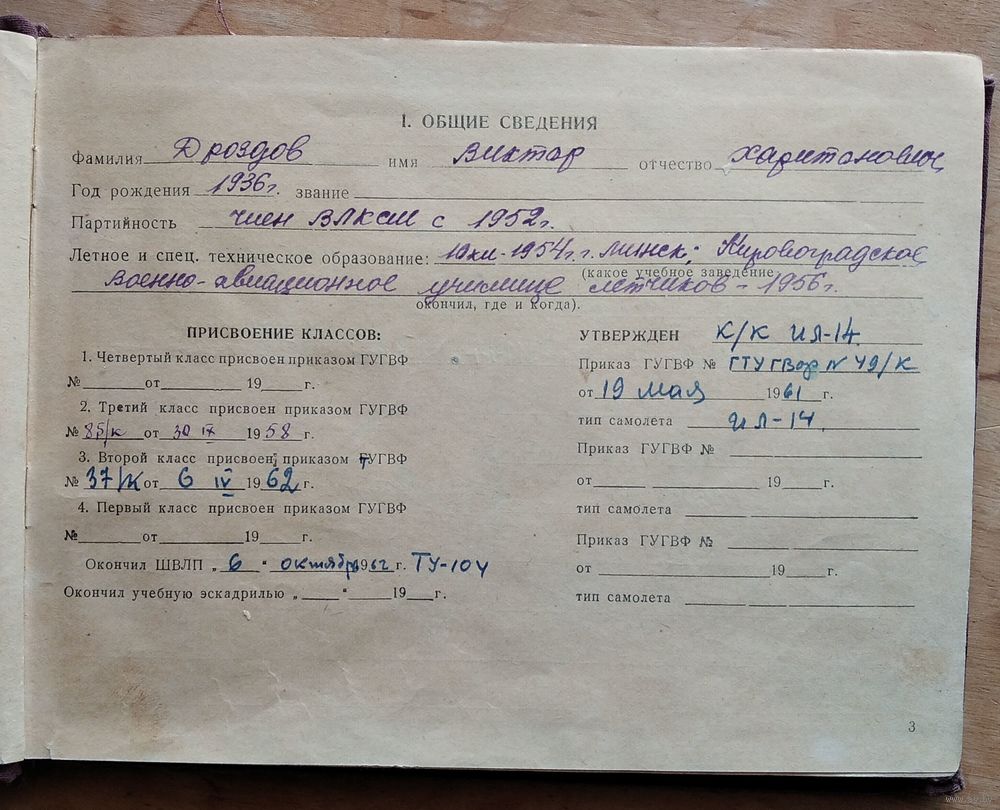 I. ОБЩИЕ СВЕДЕНИЯ
Фамилия Дроздов имя Виктар отчество Хаританович
Год рождения 1936г. звание
Партийность член ВЛКСМ с 1952г.
Летное и спец. техническое образование: 10кл-1954г. г. Минск; Кировоградское
(какое учебное заведение
Военно-авиационное училище летчиков - 1956г.
окончил, где и когда).
ПРИСВОЕНИЕ КЛАССОВ:
1. Четвертый класс присвоен приказом ГУГВФ
№ от 19 г.
2. Третий класс присвоен приказом ГУГВФ
№ 85/к от 30 IX 1958 г.
3. Второй класс присвоен приказом ТУГВФ
№ 37/к от 6 IV 1962 г.
4. Первый класс присвоен приказом ГУГВФ
№ от 19 г.
Окончил ШВЛП „ 6 " октября 1962 г. ТУ-104
Окончил учебную эскадрилью „ " 19 г.
УТВЕРЖДЕН К/К ИЛ-14
Приказ ГУГВФ № N 49/к
от 19 мая 1961 г.
тип самолета ИЛ-14.
Приказ ГУГВФ №
от 19 г.
тип самолета
Приказ ГУГВФ №
от 19 г.
тип самолета
3